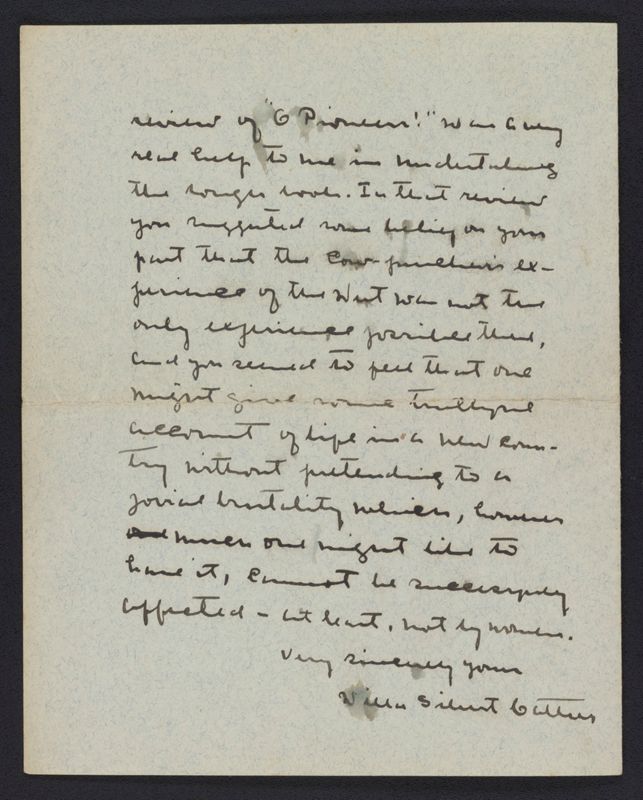 review of "O Pioneers!" was a very
real help to me in undertaking
the longer book. In that review
you suggested some belief on your
part that the cow-puncher's ex-
perience of the West was not the
only experience possible there,
and you seemed to feel that one
might give some truthful
account of life in a new coun-
try without pretending to a
jovial brutality which, however
much one might like to
have it, cannot be successfully
affected - at least, not by women.
Very sincerely yours
Willa Sibert Cather